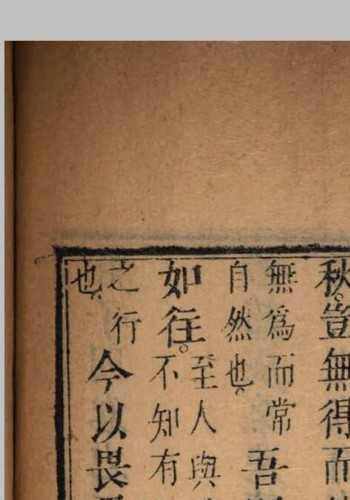 秋。豈無得而
無爲而常
自然也。
吾
如往。
至人與
不知有
之行
也。
今以畏